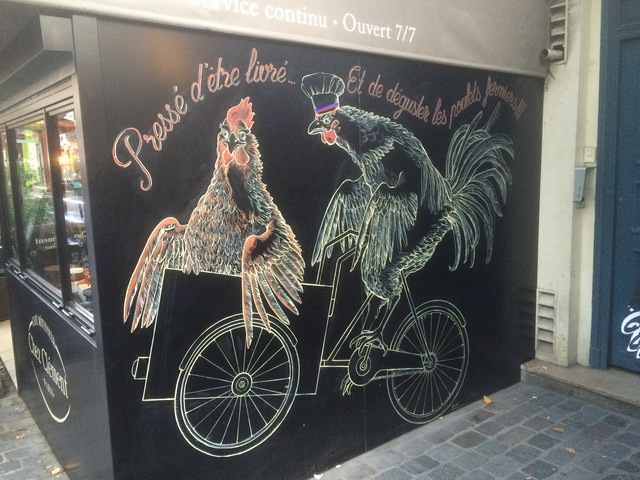 Service continu • Ouvert 7/7
Pressé d'être livré...
Et de déguster les poulets fermiers!!!
Chez Clément
PARIS